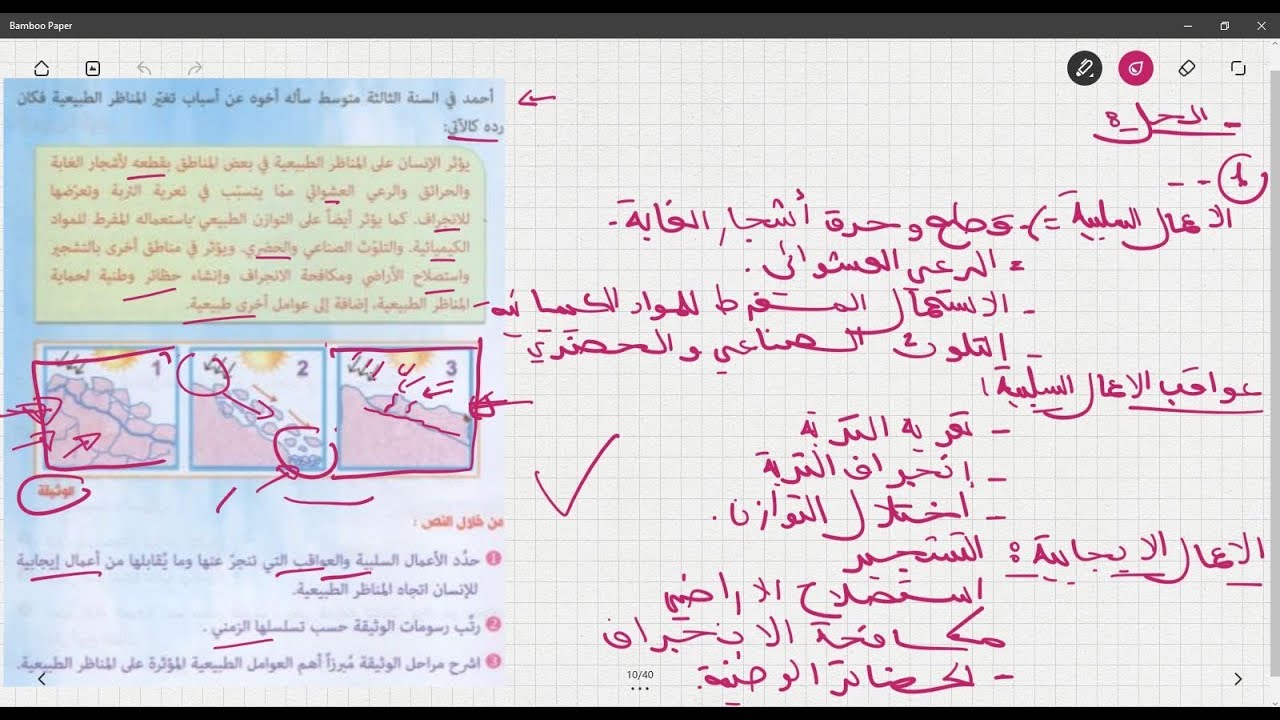 Bamboo Paper
أحمد في السنة الثالثة متوسط سأله أخوه عن أسباب تغيّر المناظر الطبيعية فكان
رده كالآتي:
يؤثر الإنسان على المناظر الطبيعية في بعض المناطق بقطعه لأشجار الغابة
والحرائق والرعي العشوائي ممّا يتسبّب في تعرية التربة وتعرّضها
للانجراف. كما يؤثر أيضاً على التوازن الطبيعي باستعماله المفرط للمواد
الكيميائية. والتلوّث الصناعي والحضري. ويؤثر في مناطق أخرى بالتشجير
واستصلاح الأراضي ومكافحة الانجراف وإنشاء حظائر وطنية لحماية
المناظر الطبيعية، إضافة إلى عوامل أخرى طبيعية.
1 2 3
الوثيقة
من خلال النص :
1 حدّد الأعمال السلبية والعواقب التي تنجرّ عنها وما يُقابلها من أعمال إيجابية
للإنسان اتجاه المناظر الطبيعية.
2 رتّب رسومات الوثيقة حسب تسلسلها الزمني .
3 اشرح مراحل الوثيقة مُبرزاً أهم العوامل الطبيعية المؤثرة على المناظر الطبيعية.
- الحل:
1 - -
الاعمال السلبية => - قطع وحرق أشجار الغابة -
= الرعي العشوائي .
- الاستعمال المفرط للمواد الكيميائية
- التلوث الصناعي والحضري
عواقب الاعمال السلبية:
- تعرية التربة
- إنجراف التربة
- اختلال التوازن .
الاعمال الايجابية: التشجير
استصلاح الاراضي
مكافحة الانجراف
- الحضائر الوطنية.
10/40